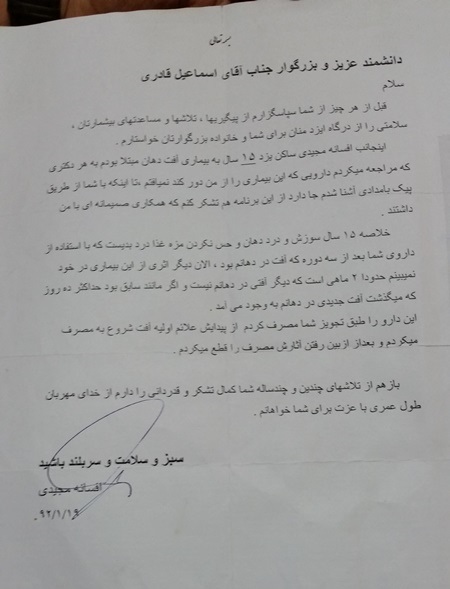 بسمه تعالی
دانشمند عزیز و بزرگوار جناب آقای اسماعیل قادری
سلام
قبل از هر چیز از شما سپاسگزارم از پیگیریها ، تلاشها و مساعدتهای بیشمارتان ،
سلامتی را از درگاه ایزد منان برای شما و خانواده بزرگوارتان خواستارم .
اینجانب افسانه مجیدی ساکن یزد ۱۵ سال به بیماری آفت دهان مبتلا بودم به هر دکتری
که مراجعه میکردم دارویی که این بیماری را از من دور کند نمیافتم ،تا اینکه با شما از طریق
پیک بامدادی آشنا شدم جا دارد از این برنامه هم تشکر کنم که همکاری صمیمانه ای با من
داشتند .
خلاصه ۱۵ سال سوزش و درد دهان و حس نکردن مزه غذا درد بدیست که با استفاده از
داروی شما بعد از سه دوره که آفت در دهانم بود ، الان دیگر اثری از این بیماری در خود
نمیبینم حدودا ۲ ماهی است که دیگر آفتی در دهانم نیست و اگر مانند سابق بود حداکثر ده روز
که میگذشت آفت جدیدی در دهانم به وجود می آمد .
این دارو را طبق تجویز شما مصرف کردم از پیدایش علائم اولیه آفت شروع به مصرف
میکردم و بعداز ازبین رفتن آثارش مصرف را قطع میکردم .
بازهم از تلاشهای چندین و چندساله شما کمال تشکر و قدردانی را دارم از خدای مهربان
طول عمری با عزت برای شما خواهانم .
سبز و سلامت و سربلند باشید
افسانه مجیدی
۹۲/۱/۱۹ .